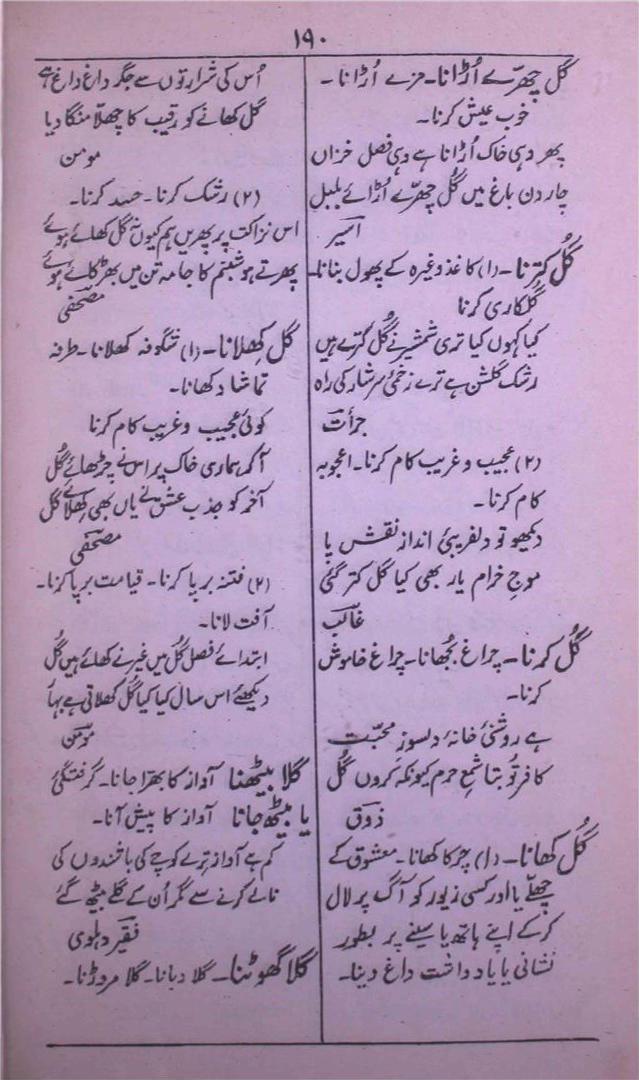 ۱۹۰
گل چھرّے اُڑانا۔ مزے اُڑانا۔
خوب عیش کرنا۔
پھر وہی خاک اُڑانا ہے وہی فصل خزاں
چار دن باغ میں گُل چھرّے اُڑائے بلبل
اسیر
گُل کترنا۔ (۱) کاغذ وغیرہ کے پھول بنانا۔
گلکاری کرنا
کیا کہوں کیا تری شمشیر نے گُل کترے ہیں
رشک گلشن ہے ترے زخمیٔ سرشار کی راہ
جرأت
(۲) عجیب و غریب کام کرنا۔ اعجوبہ
کام کرنا۔
دیکھو تو دلفریبیٔ اندازِ نقش پا
موجِ خرام یار بھی کیا گل کتر گئی
غالب
گُل کرنا۔ چراغ بُجھانا۔ چراغ خاموش
کرنا۔
ہے روشنیٔ خانۂ دلسوز محبّت
کافر تُو بتا شمعِ حرم کیونکہ کروں گُل
ذوق
گُل کھانا۔ (۱) چرکا کھانا۔ معشوق کے
چھلّے یا اور کسی زیور کو آگ پر لال
کر کے اپنے ہاتھ یا سینے پر بطور
نشانی یا یادداشت داغ دینا۔
اُس کی شرارتوں سے جگر داغ داغ ہے
گل کھانے کو رقیب کا چھلّا منگا دیا
مومن
(۲) رشک کرنا۔ حسد کرنا۔
اس نزاکت پر پھریں ہم کیوں نہ گل کھائے ہوئے
پھرتے ہو شبنم کا جامہ تن میں بھڑکائے ہوئے
مصحفی
گل کھلانا۔ (۱) شگوفہ کھلانا۔ طرفہ
تماشا دکھانا۔
کوئی عجیب و غریب کام کرنا
آ کر ہماری خاک پر اس نے چڑھائے گُل
آخر کو جذب عشق نے یاں بھی کھلائے گل
مصحفی
(۲) فتنہ برپا کرنا۔ قیامت برپا کرنا۔
آفت لانا۔
ابتدائے فصل گُل میں غیر نے کھائے ہیں گُل
دیکھئے اس سال کیا کیا گُل کھلاتی ہے بہار
مومن
گلا بیٹھنا آواز کا بھرّا جانا۔ گرفتگیٔ
یا بیٹھ جانا آواز کا پیش آنا۔
کم ہے آواز ترے کوچے کی باشندوں کی
نالے کرنے سے مگر اُن کے گلے بیٹھ گئے
فقیر دہلوی
گلا گھوٹنا۔ گلا دبانا۔ گلا مروڑنا۔